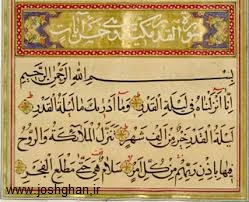 سورة القدر
بِسْمِ اللهِ الرَّحْمنِ الرَّحِيمِ
اِنَّا اَنْزَلْنَاهُ فِي لَيْلَةِ الْقَدْرِ وَمَا اَدْرٰيكَ مَا لَيْلَةُ الْقَدْرِ
لَيْلَةُ الْقَدْرِ خَيْرٌ مِنْ اَلْفِ شَهْرٍ تَنَزَّلُ الْمَلٰئِكَةُ وَالرُّوحُ
فِيهَا بِاِذْنِ رَبِّهِمْ مِنْ كُلِّ اَمْرٍ سَلَامٌ هِيَ حَتّٰى مَطْلَعِ الْفَجْرِ
www.joshghan.ir